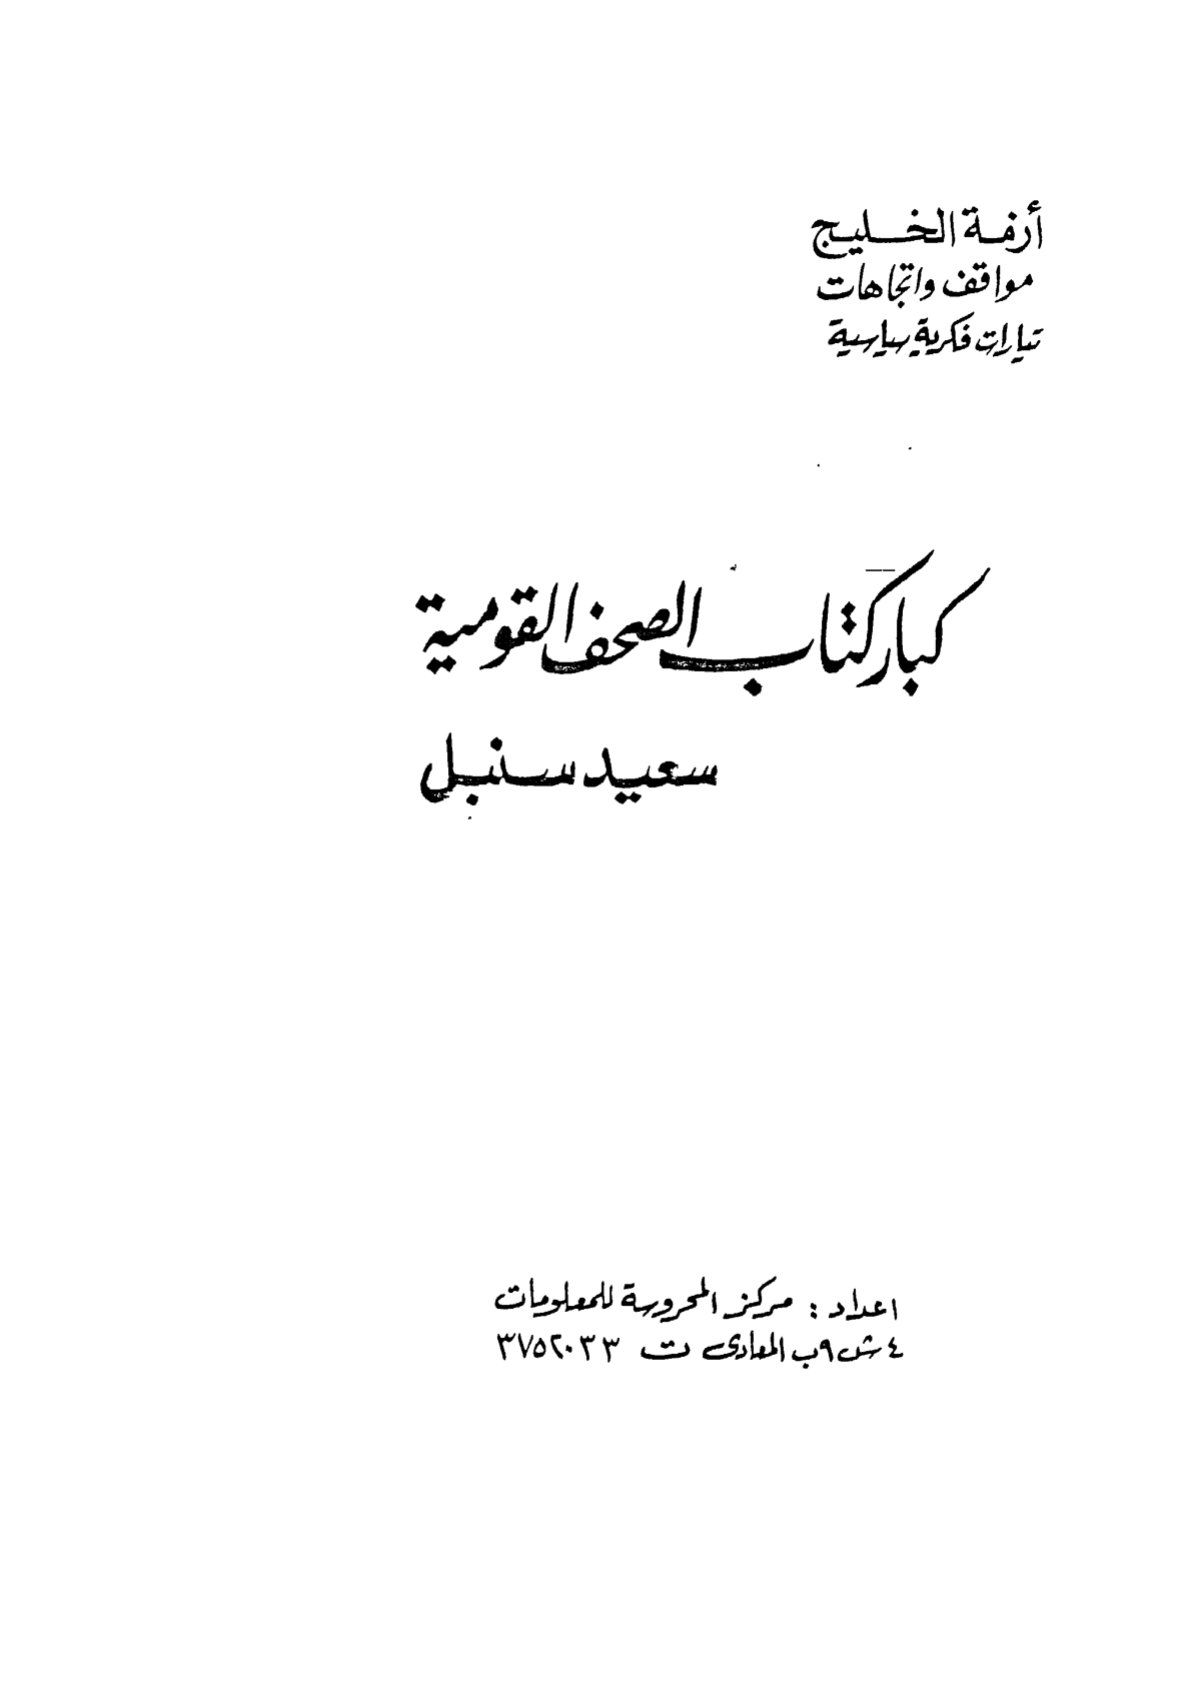 أزمة الخليج
مواقف واتجاهات
تيارات فكرية سياسية
كبار كتاب الصحف القومية
سعيد سنبل
اعداد : مركز المحروسة للمعلومات
٤ ش ٩ب المعادى ت ٣٧٥٢٠٣٣